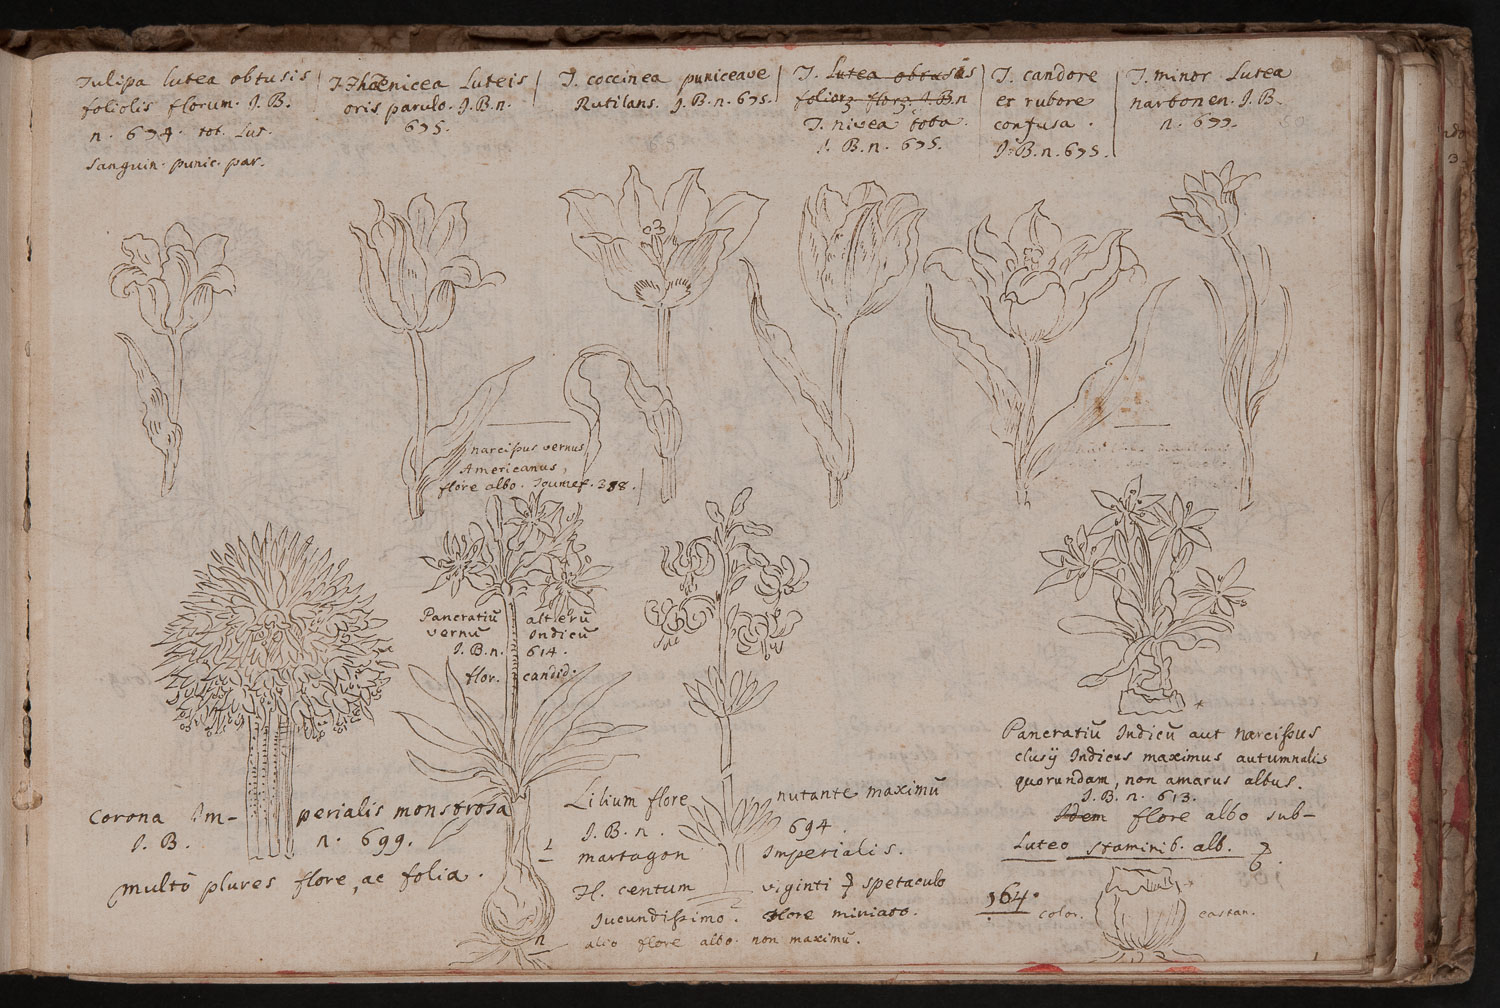 Tulipa lutea obtusis
foliolis florum. J. B.
n. 674. tot. Lut.
Sanguin. punic. par.
T. Phœnicea Luteis
oris parulo. J. B. n.
675.
T. coccinea puniceave
Rutilans. J. B. n. 675.
T. Lutea obtusis
folior. flor. J. B. n
T. nivea tota.
J. B. n. 675.
T. candore
et rubore
confusa.
J. B. n. 675.
T. minor Lutea
narbonen. J. B.
n. 677.
narcissus vernus
Americanus,
flore albo. Tournef. 388.
Pancratiū alterū
vernū Indicū
J. B. n. 614.
flor. candid.
Corona Im- perialis monstrosa
J. B. n. 699.
multō plures flore, ac folia.
1
n
Lilium flore nutante maximū
J. B. n. 694.
martagon Imperialis.
H. centum viginti spetaculo
Jucundissimo. Flore miniato.
alio flore albo. non maximū.
Pancratiū Indicū aut narcissus
clusij Indicus maximus autumnalis
quorundam, non amarus albus.
J. B. n. 613.
Idem flore albo sub-
Luteo staminib. alb.
164.
color. castan.